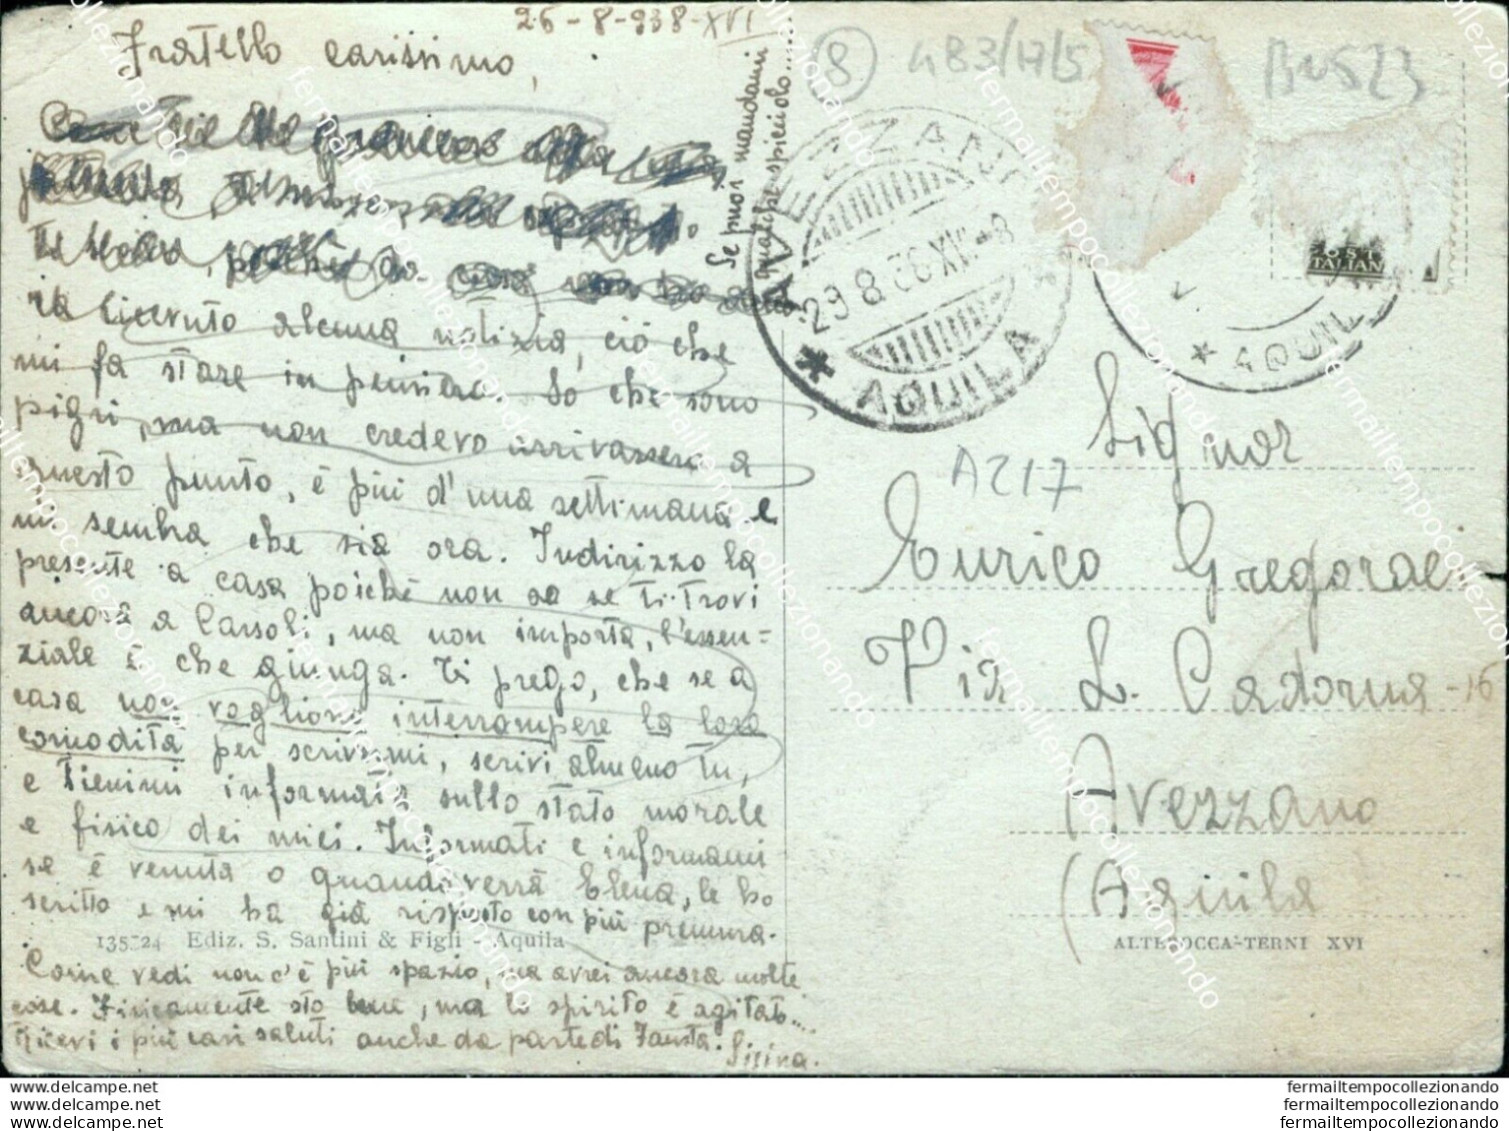 26-8-938-XVI
Fratello carissimo,
ricevuto alcuna notizia, ciò che
mi fa stare in pensiero. So che sono
pigri, ma non credevo arrivassero a
questo punto, è più d'una settimana e
mi sembra che sia ora. Indirizzo la
presente a casa poiché non so se ti trovi
ancora a Carsoli, ma non importa, l'essen=
ziale è che giunga. Ti prego, che se a
casa non vogliono interrompere la loro
comodità per scrivermi, scrivi almeno tu,
e tienimi informata sullo stato morale
e fisico dei miei. Informati e informami
se è venuta o quando verrà Elena, le ho
scritto e mi ha già risposto con più premura.
Come vedi non c'è più spazio, ma avrei ancora molte
cose. Fisicamente sto bene, ma lo spirito è agitato....
Ricevi i più cari saluti anche da parte di Fausta.
Se puoi mandami
qualche spicciolo.....
135 24 Ediz. S. Santini & Figli - Aquila
8
483/17/5
BUS23
AVEZZANO
29.8.38 XVI-8
* AQUILA *
* AQUIL
POST
ITALIAN
A217
Signor
Eurico Gregoraci
Via L. Cadorna -16
Avezzano
(Aquila
ALTEROCCA-TERNI XVI
fermailtempocollezionando
fermailtempocollezionando
fermailtempocollezionando
www.delcampe.net
www.delcampe.net
www.delcampe.net